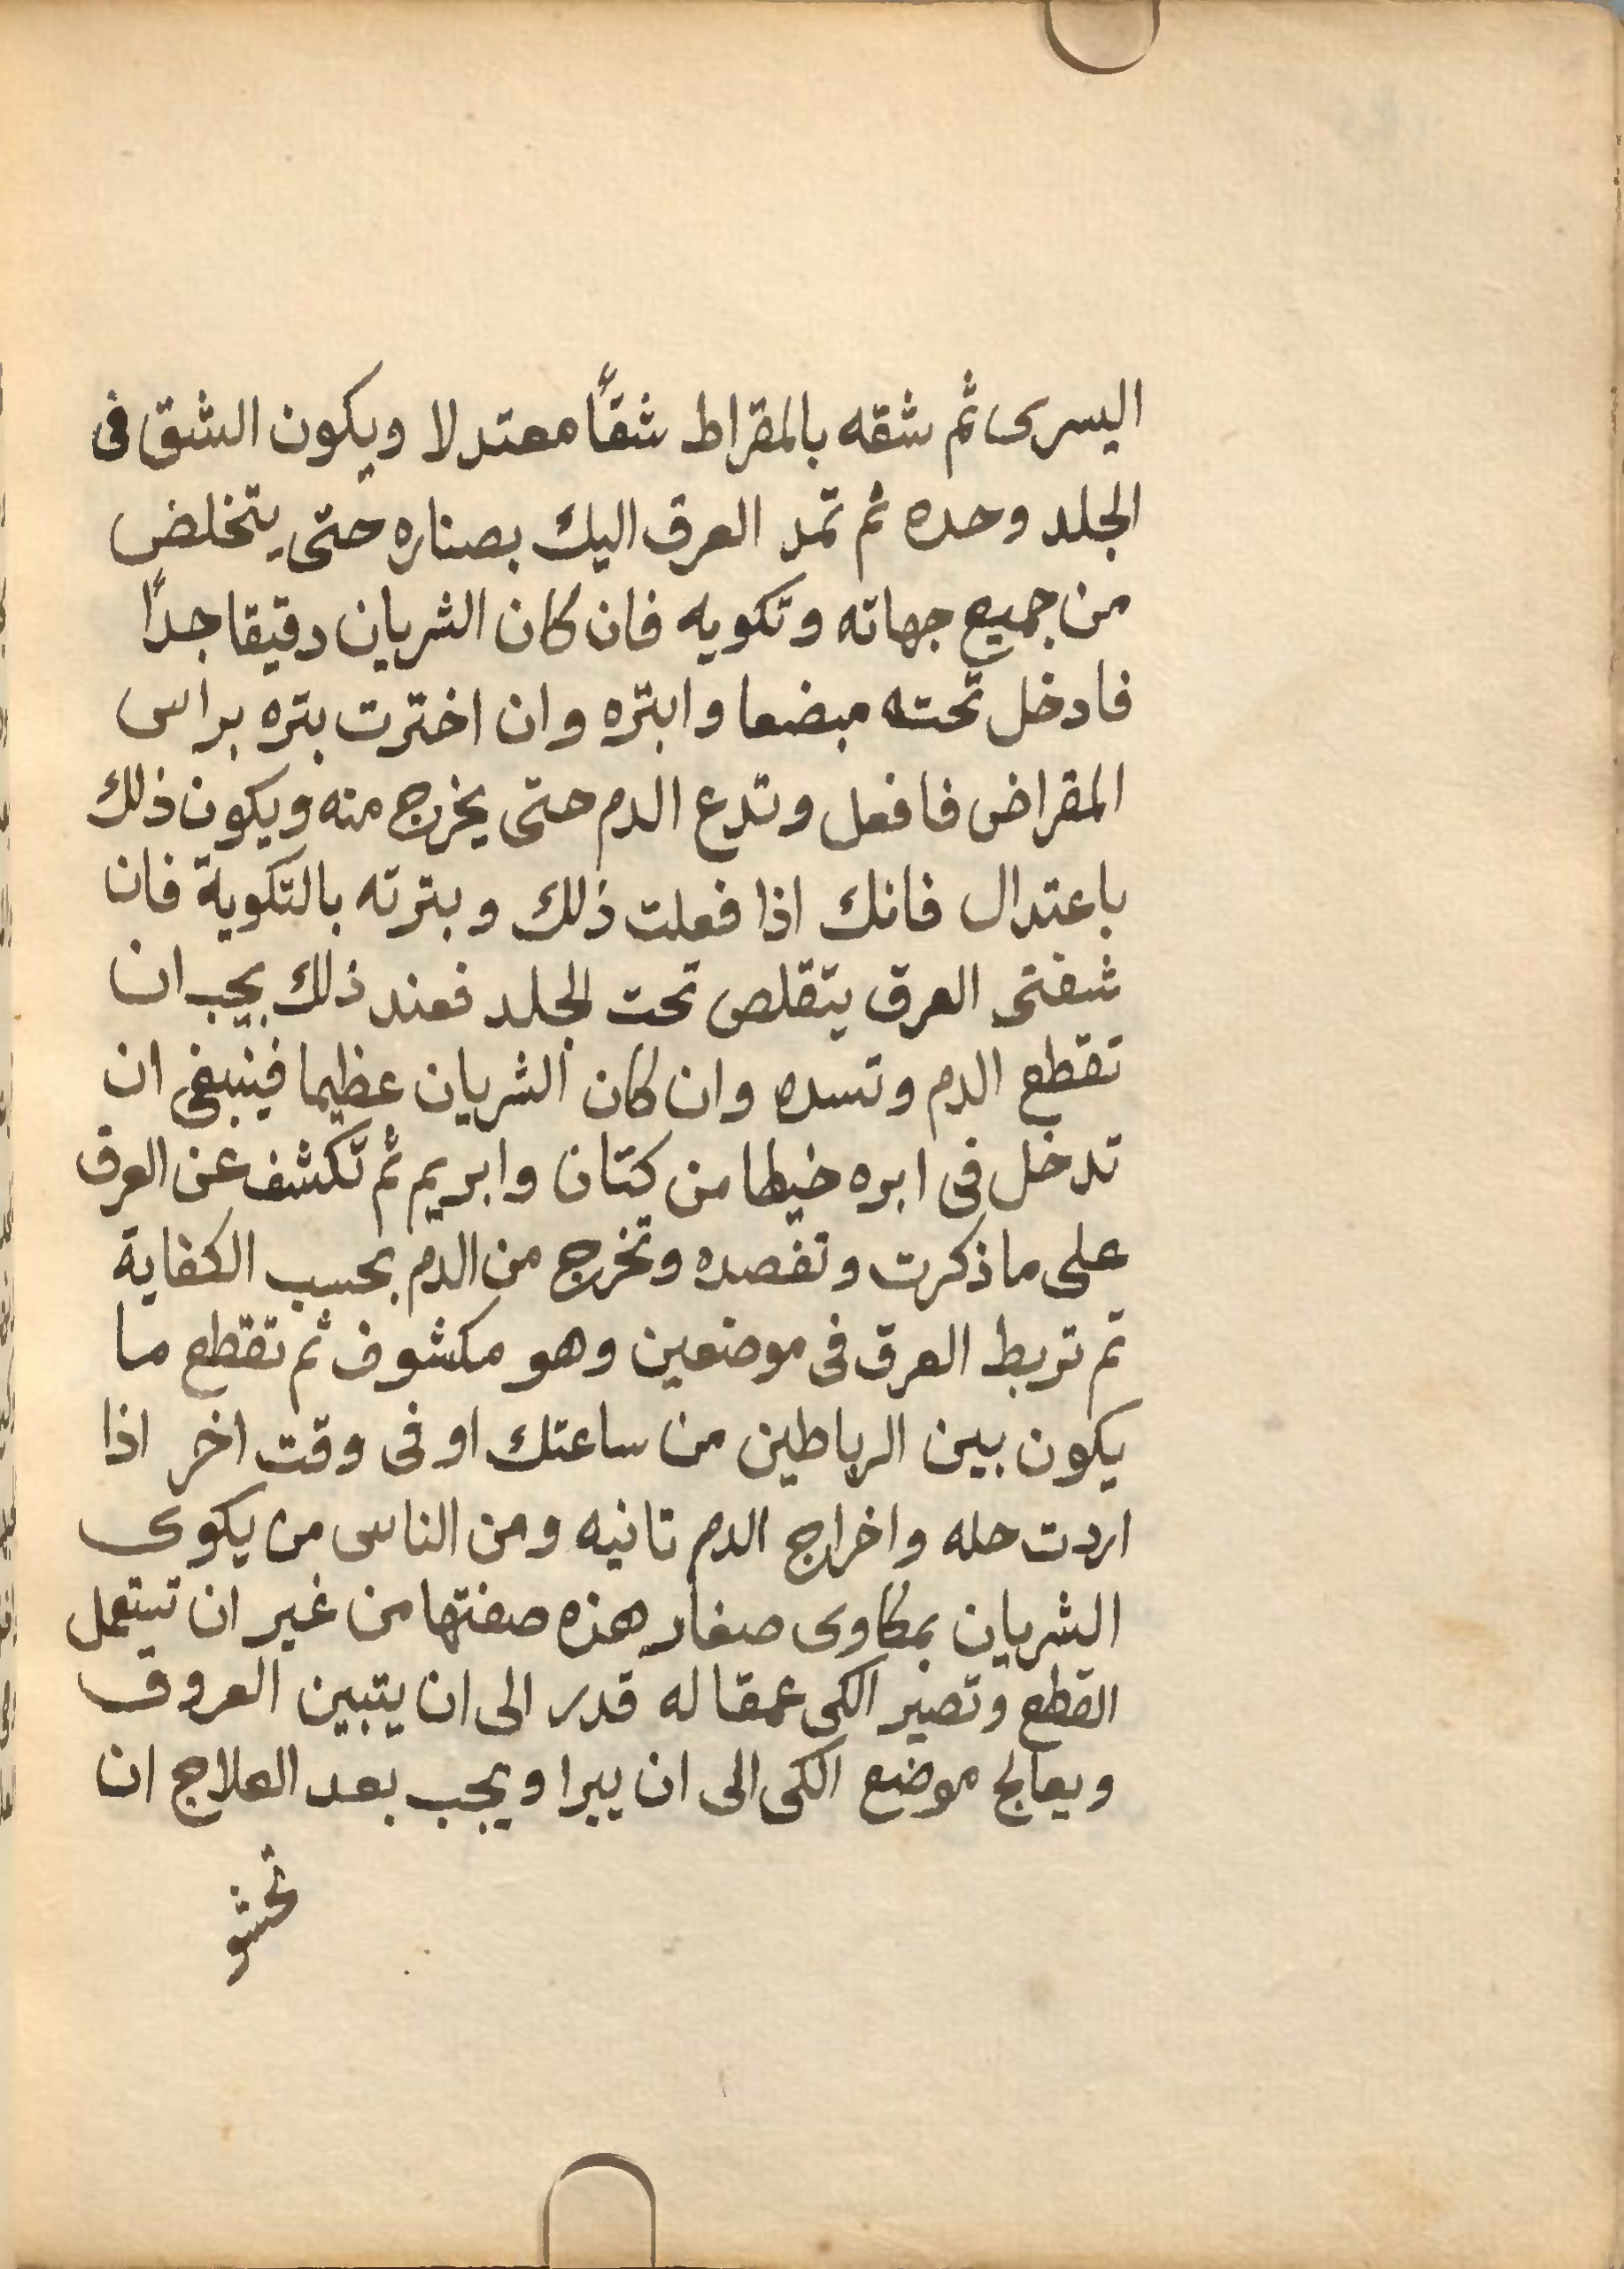 اليسرى ثم شقه بالمقراط شقاً معتدلا ويكون الشق فى
الجلد وحده ثم تمد العرق اليك بصناره حتى يتخلض
من جميع جهاته وتكويه فان كان الشريان دقيقا جداً
فادخل تحته مبضعا وابتره وان اخترت بتره براس
المقراض فافعل وتدع الدم حتى يخرج منه ويكون ذلك
باعتدال فانك اذا فعلت ذلك وبترته بالتكوية فان
شفتى العرق يتقلص تحت الجلد فعند ذلك يجب ان
تقطع الدم وتسده وان كان الشريان عظيما فينبغى ان
تدخل فى ابره خيطا من كتان وابريم ثم تكشف عن العرق
على ما ذكرت وتفصده وتخرج من الدم بحسب الكفاية
تم تربط العرق فى موضعين وهو مكشوف ثم تقطع ما
يكون بين الرباطين من ساعتك او فى وقت اخر اذا
اردت حله واخراج الدم تانيه ومن الناس من يكوى
الشريان بمكاوى صغار هذه صفتها من غير ان
القطع وتصير الكى عمقا له قدر الى ان يتبين العروق
ويعالج موضع الكى الى ان يبرا ويجب بعد العلاج ان
تحشو